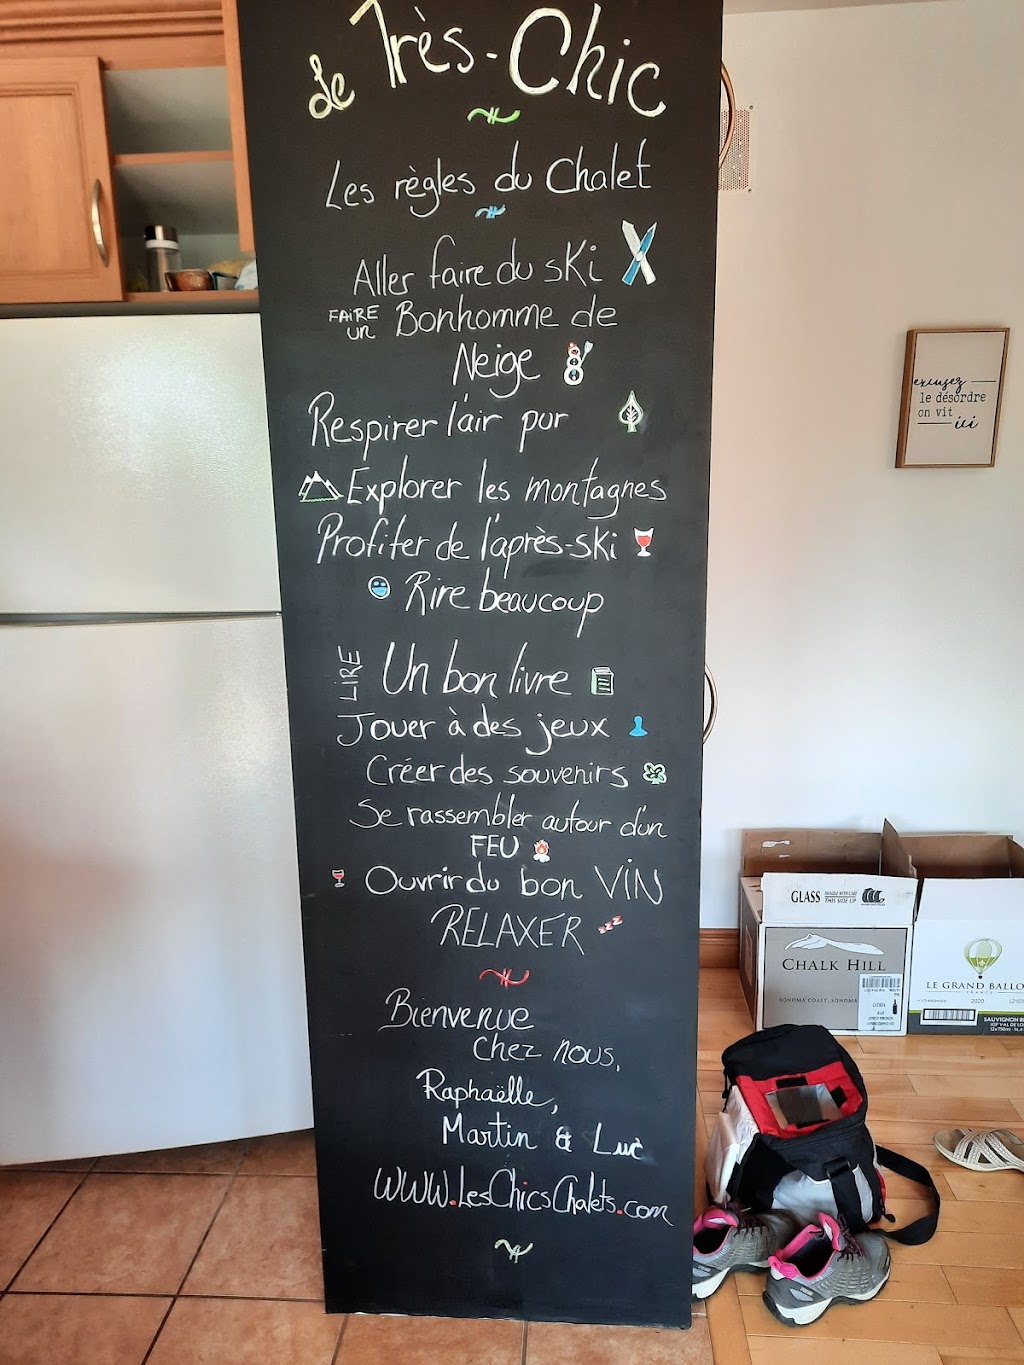 de Très-Chic
Les règles du Chalet
Aller faire du ski
FAIRE UN Bonhomme de
Neige
Respirer l'air pur
Explorer les montagnes
Profiter de l'après-ski
Rire beaucoup
LIRE Un bon livre
Jouer à des jeux
Créer des souvenirs
Se rassembler autour d'un
FEU
Ouvrir du bon VIN
RELAXER zzz
Bienvenue
chez nous,
Raphaëlle,
Martin & Luc
WWW.LesChicsChalets.com
excusez
le désordre
on vit
ici
GLASS HANDLE WITH CARE
THIS SIDE UP
CHALK HILL
SONOMA COAST, SONOMA
LE GRAND BALLO
FRANCE
2020
SAUVIGNON B
IGP VAL DE LO